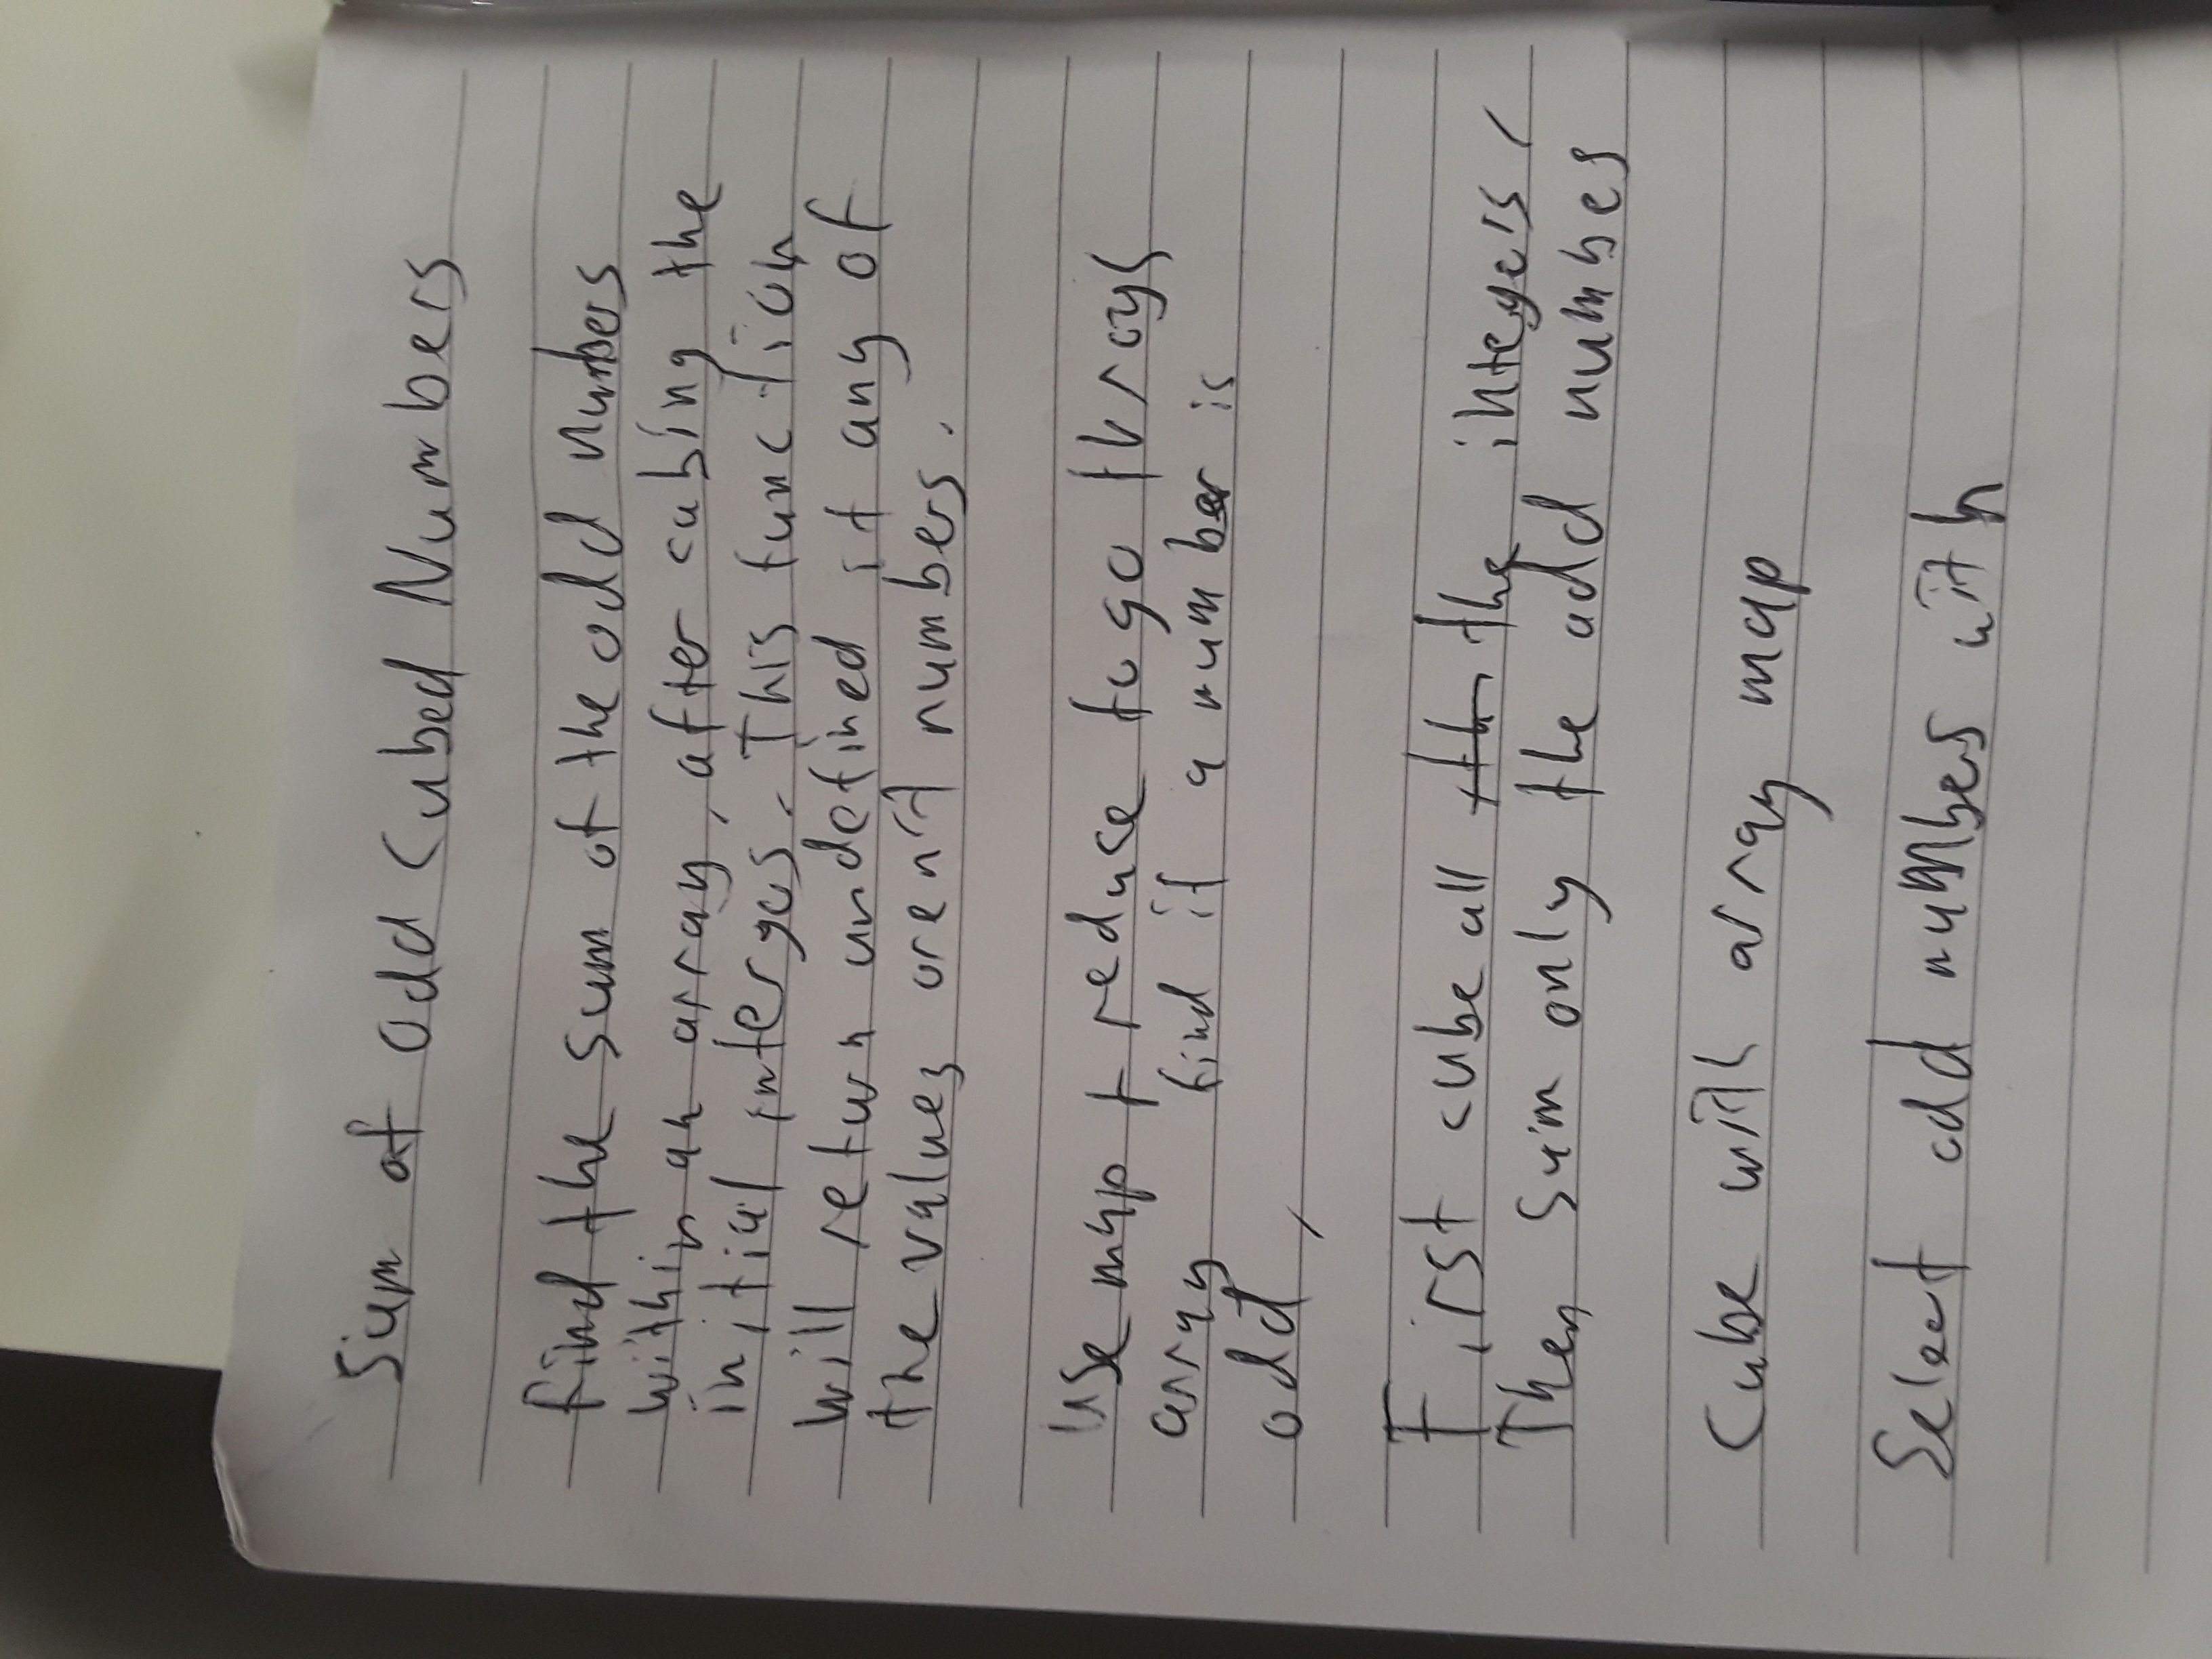 Sum of Odd Cubed Numbers
Find the sum of the odd numbers
within an array, after cubing the
initial intergers. This function
will return undefined if any of
the values aren't numbers.
Use map + reduce to go through
array find if a number is
odd,
First cube all th the integers,
Then sum only the odd numbes
Cube with array map
Select odd numbes with